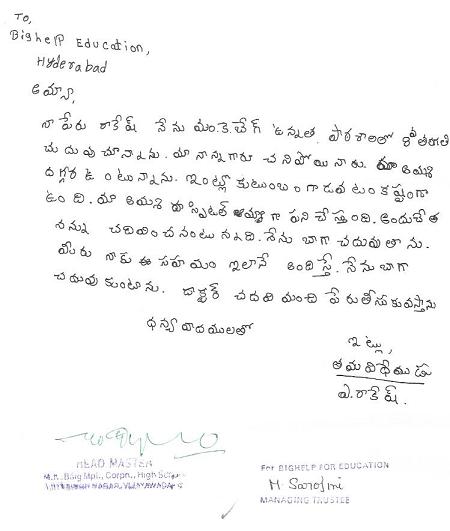 To,
BigHelp Education,
Hyderabad
అమ్మా,
నా పేరు రాకేష్ నేను యం.కె.బేగ్ ఉన్నత పాఠశాలలో 8వ తరగతి
చదువు చున్నాను. మా నాన్నగారు చనిపోయినారు. మా అమ్మ
దగ్గర ఉంటున్నాను. ఇంట్లో కుటుంబం గడవటం కష్టంగా
ఉంది. మా అమ్మ హాస్పిటల్ ఆయాగా పని చేస్తుంది. అందుచేత
నన్ను చదివించనంటున్నది. నేను బాగా చదువుతాను.
మీరు నాకు ఈ సహయం ఇలానే అందిస్తే. నేను బాగా
చదువుకుంటాను. డాక్టర్ చదివి మంచి పేరుతీసుకువస్తాను
ధన్యవాదములతో
ఇట్లు,
తమ విధేయుడు
ఎ.రాకేష్.
HEAD MASTER
M.K. Baig Mpl., Corpn., High School
For BIGHELP FOR EDUCATION
M. Sarojini
MANAGING TRUSTEE